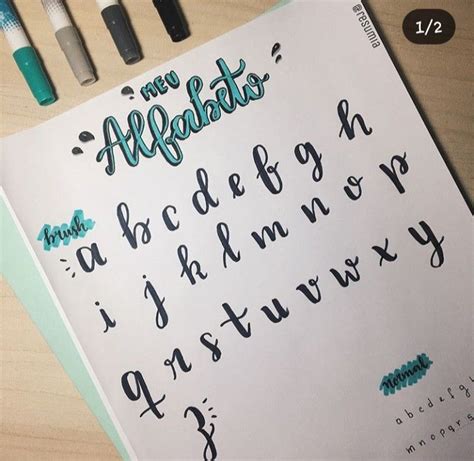 1/2
@resumia
MEU
Alfabeto
brush
a b c d e f g h
i j k l m n o p
q r s t u v w x y
z
normal
a b c d e f g h
m n o p q r s